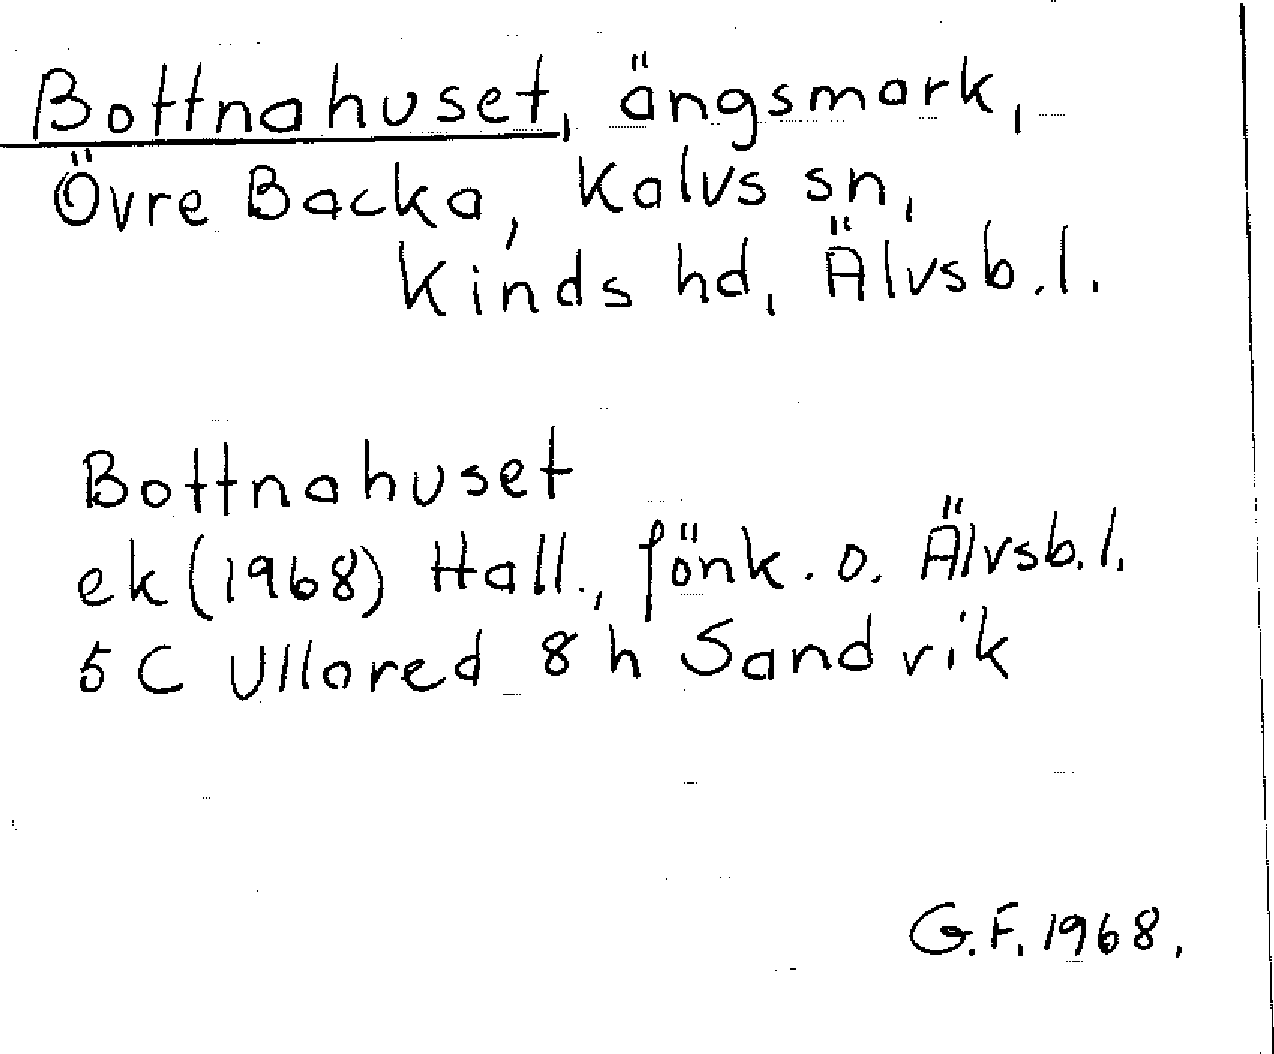 Bottnahuset, ängsmark,
Övre Backa, Kalvs sn,
Kinds hd, Älvsb.l.
Bottnahuset
ek (1968) Hall., fönk. o. Älvsb.l.
5 C Ullared 8 h Sandvik
G.F. 1968.